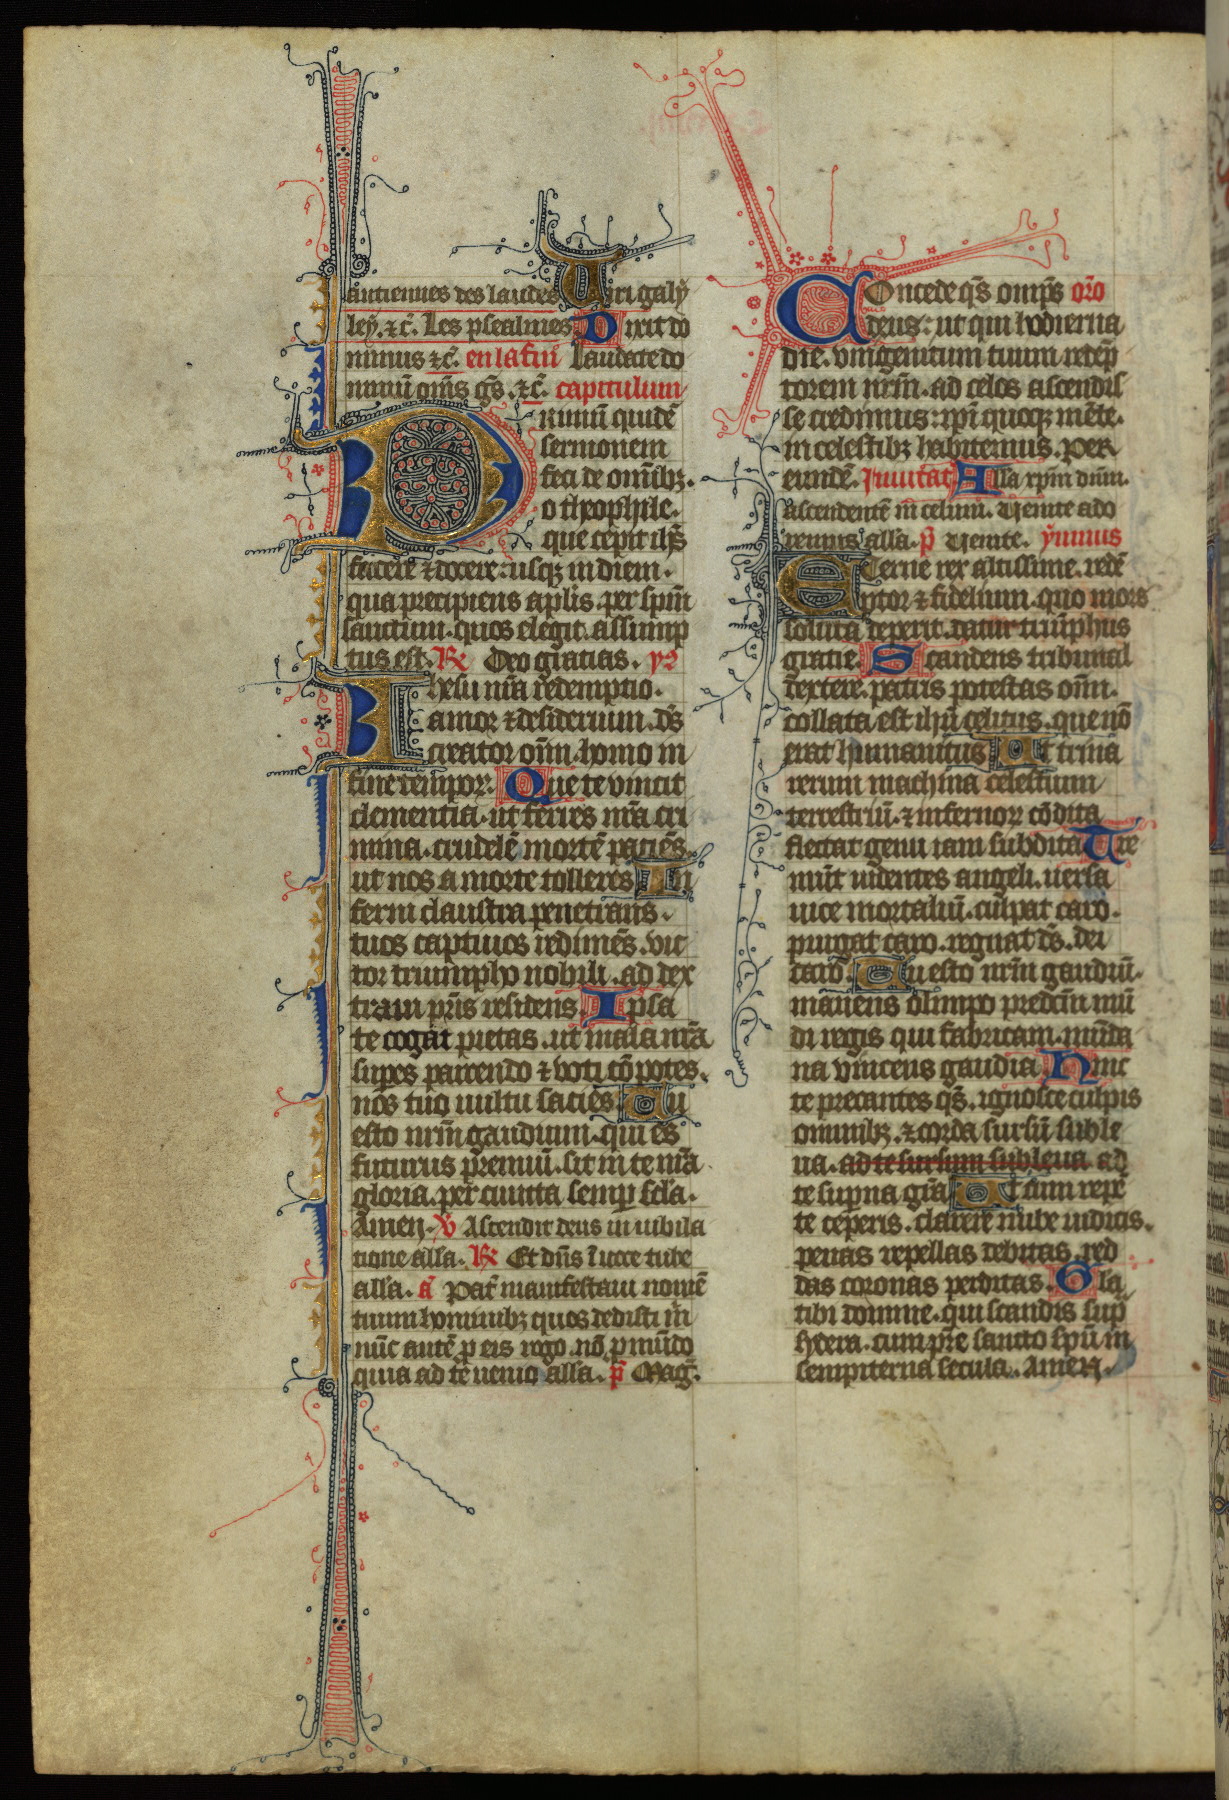 antiennes des laudes Uiri galy
ley. ⁊c̄. Les psealmes. Dixit do
minus ⁊c̄. en la fin Laudate do
minū om̄s gs̄. ⁊c̄. capitulum
Rimū quidē
sermonem
feci de om̄ibꝫ.
o theophile.
que cepit ihs̄
facere ⁊ docere: usqꝫ in diem.
qua precipiens aplis. per spm̄
sanctum. quos elegit. assump
tus est. R̄ Deo gratias. ym̄
Ihesu nr̄a redemptio.
amor ⁊ desiderium. ds̄
creator om̄. homo in
fine tempoꝝ. Que te vincit
clementia. ut ferres nr̄a cri
mina. crudelē mortē paciēs.
ut nos a morte tolleres In
ferni claustra penetrans.
tuos captiuos redimēs. vic
tor triumpho nobili. ad dex
tram pr̄is residens. Ipsa
te cogat pietas. ut mala nr̄a
supes parcendo ⁊ voti cōpotes.
nos tuo uultu saties. Tu
esto nrm̄ gaudium. qui es
futurus premiū. sit in te nr̄a
gloria. per cuncta semp scl̄a.
Amen. ꝟ Ascendit deus in iubila
tione all'a. R̄ Et dn̄s ī uoce tube
all'a. a᷃ Pat̄ manifestaui nomē
tuum hominibꝫ quos dedisti m̄
nūc autē ꝓ eis rogo. nō ꝓ mūdo
quia ad te uenio all'a. p̄ Maḡ.
Concede qs̄ omps̄ or̄o
deus: ut qui hodierna
die. vnigenitum tuum redēp
torem nrm̄. ad celos ascendis
se credimus: ipī quoqꝫ mēte.
in celestibꝫ habitemus. Per
eundē. Inuitat̄ Alla xpm̄ dnm̄.
ascendentē in celum. Uenite ado
remus all'a. p̄ Uenite. ymnus
Eterne rex altissime. redē
ptor ⁊ fidelium. quo mors
soluta deperit. datur triūphus
gratie. Scandens tribunal
dextere. patris potestas om̄.
collata est ihū celitus. que nō
erat humanitus Ut trina
rerum machina celestium
terrestriū. ⁊ infernoꝝ cōdita
flectat genu iam subdita Tre
mūt uidentes angeli. uersa
uice mortaliū. culpat caro.
purgat caro. regnat ds̄. dei
caro. Tu esto nrm̄ gaudiū.
manens olimpo prediū mū
di regis qui fabricam. mūda
na vincens gaudia Hinc
te precantes qs̄. ignosce culpis
omnibꝫ. ⁊ corda sursū suble
ua. ad te sursum subleua. ad
te supna gr̄a Ut cum repē
te ceperis. clarere nube iudicis.
penas repellas debitas. red
das coronas perditas. Gl̄a
tibi domine. qui scandis sup
sydera. cum pr̄e sancto spū. in
sempiterna secula. Amen.